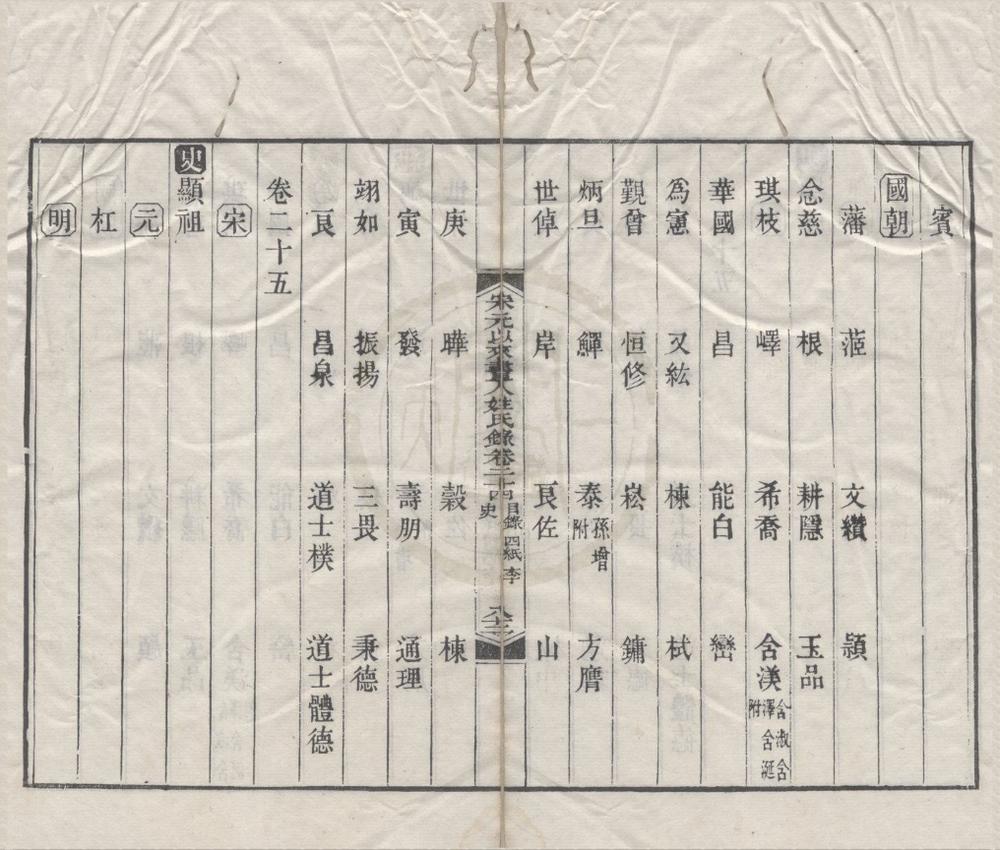 賓
國朝
藩 蒞 文纘 顥
念慈 根 耕隱 玉品
琪枝 嶧 希喬 含渼 含淑含澤含涎附
華國 昌 能白 巒
為憲 又紘 棟 栻
觐曾 恒修 崧 鏞
炳旦 鱓 泰 孫增附 方膺
世倬 岸 艮佐 山
宋元以來畫人姓氏錄卷二十四 目錄 史 四紙 李 八三
庚 曄 穀 棟
寅 發 壽朋 通理
翊如 振揚 三畏 秉德
艮 昌泉 道士樸 道士體德
卷二十五
宋
史顯祖
元
杠
明